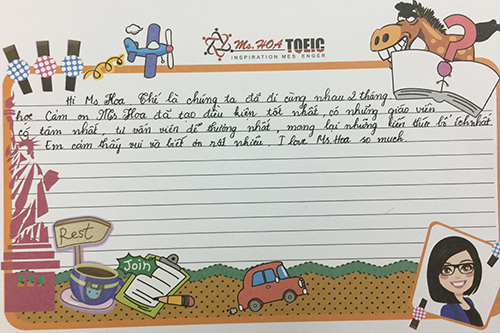 Ms. HOA TOEIC
INSPIRATION MESSENGER
Hi Ms Hoa Thế là chúng ta đã đi cùng nhau 2 tháng
học Cảm ơn Ms Hoa đã tạo điều kiện tốt nhất, có những giáo viên
có tâm nhất, tư vấn viên dễ thương nhất, mang lại những kiến thức bổ ích nhất
Em cảm thấy vui và biết ơn rất nhiều. I love Ms.Hoa so much.
Rest
Join